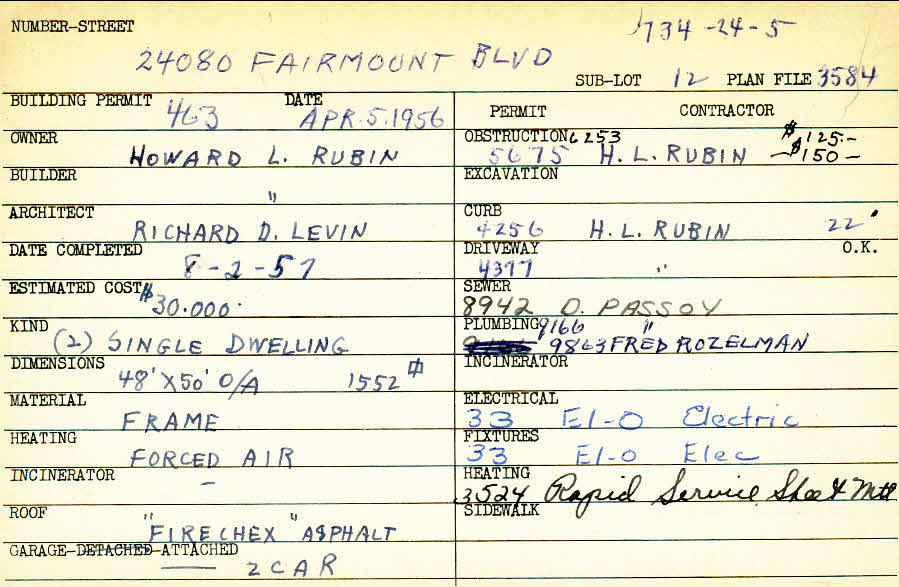 NUMBER-STREET
734-24-5
24080 FAIRMOUNT BLVD
SUB-LOT 12 PLAN FILE 3584
BUILDING PERMIT 463 DATE APR. 5. 1956
OWNER HOWARD L. RUBIN
BUILDER "
ARCHITECT RICHARD D. LEVIN
DATE COMPLETED 8-2-57
ESTIMATED COST $30.000.
KIND (2) SINGLE DWELLING
DIMENSIONS 48' X 50' O/A 1552
MATERIAL FRAME
HEATING FORCED AIR
INCINERATOR -
ROOF "FIRECHEX" ASPHALT
GARAGE-DETACHED-ATTACHED
2 CAR
PERMIT CONTRACTOR
OBSTRUCTION 6253 $125.-
5675 H. L. RUBIN -$150-
EXCAVATION
CURB 4256 H. L. RUBIN 22'
DRIVEWAY O.K.
4377 "
SEWER
8942 D. PASSOV
PLUMBING 9166 "
9863 FRED ROZELMAN
INCINERATOR
ELECTRICAL
33 El-O Electric
FIXTURES
33 El-O Elec
HEATING
3524 Rapid Service Shee & Mtl
SIDEWALK